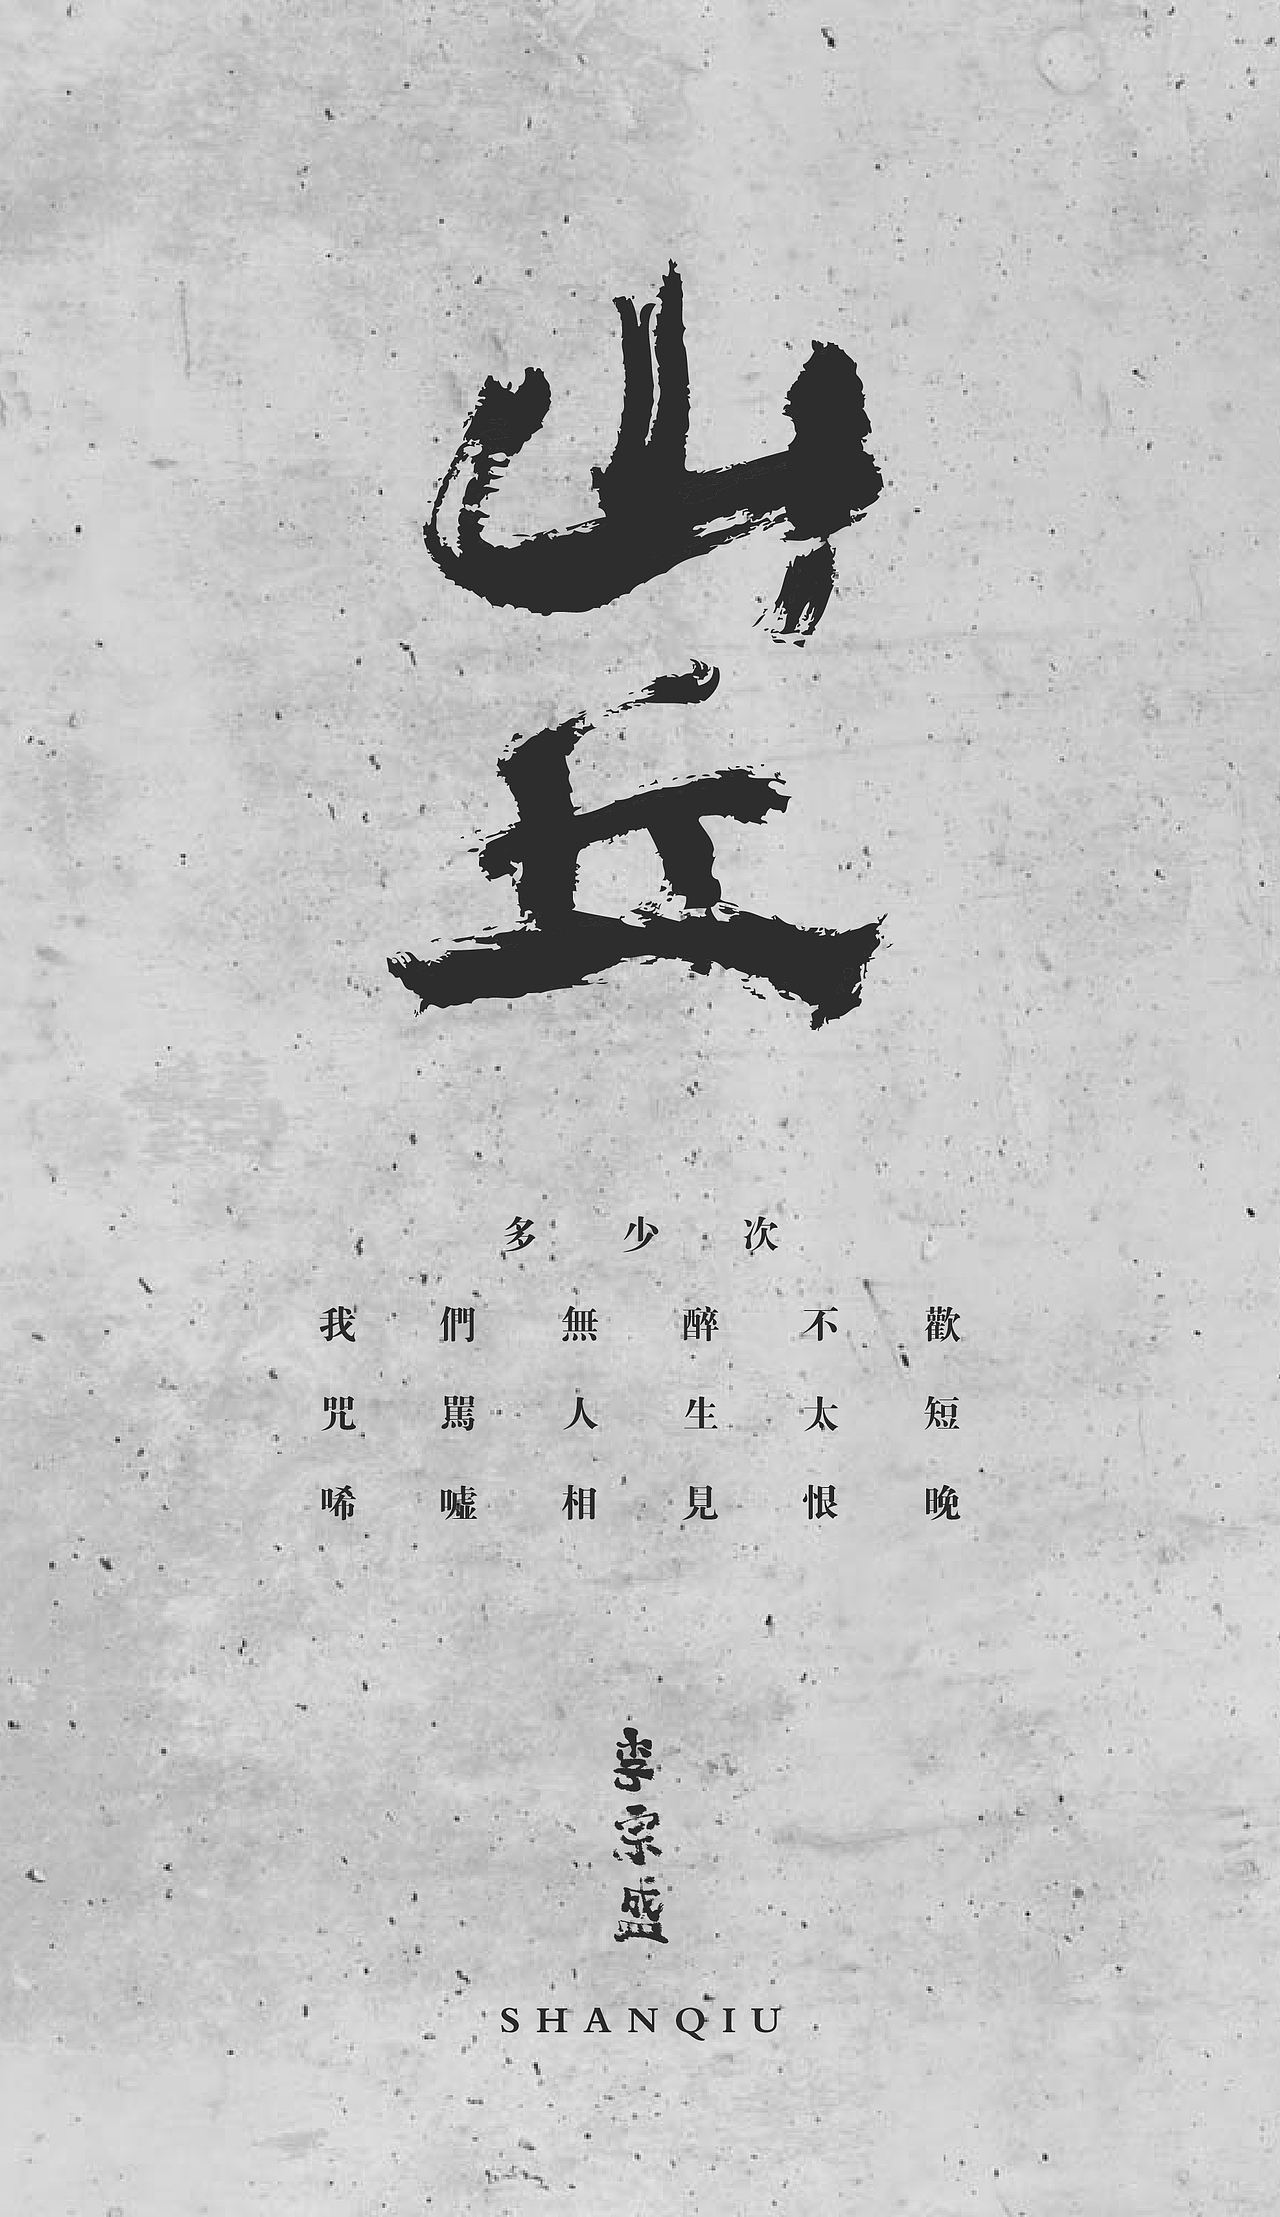 山丘
多少次
我們無醉不歡
咒罵人生太短
唏噓相見恨晚
李宗盛
SHANQIU